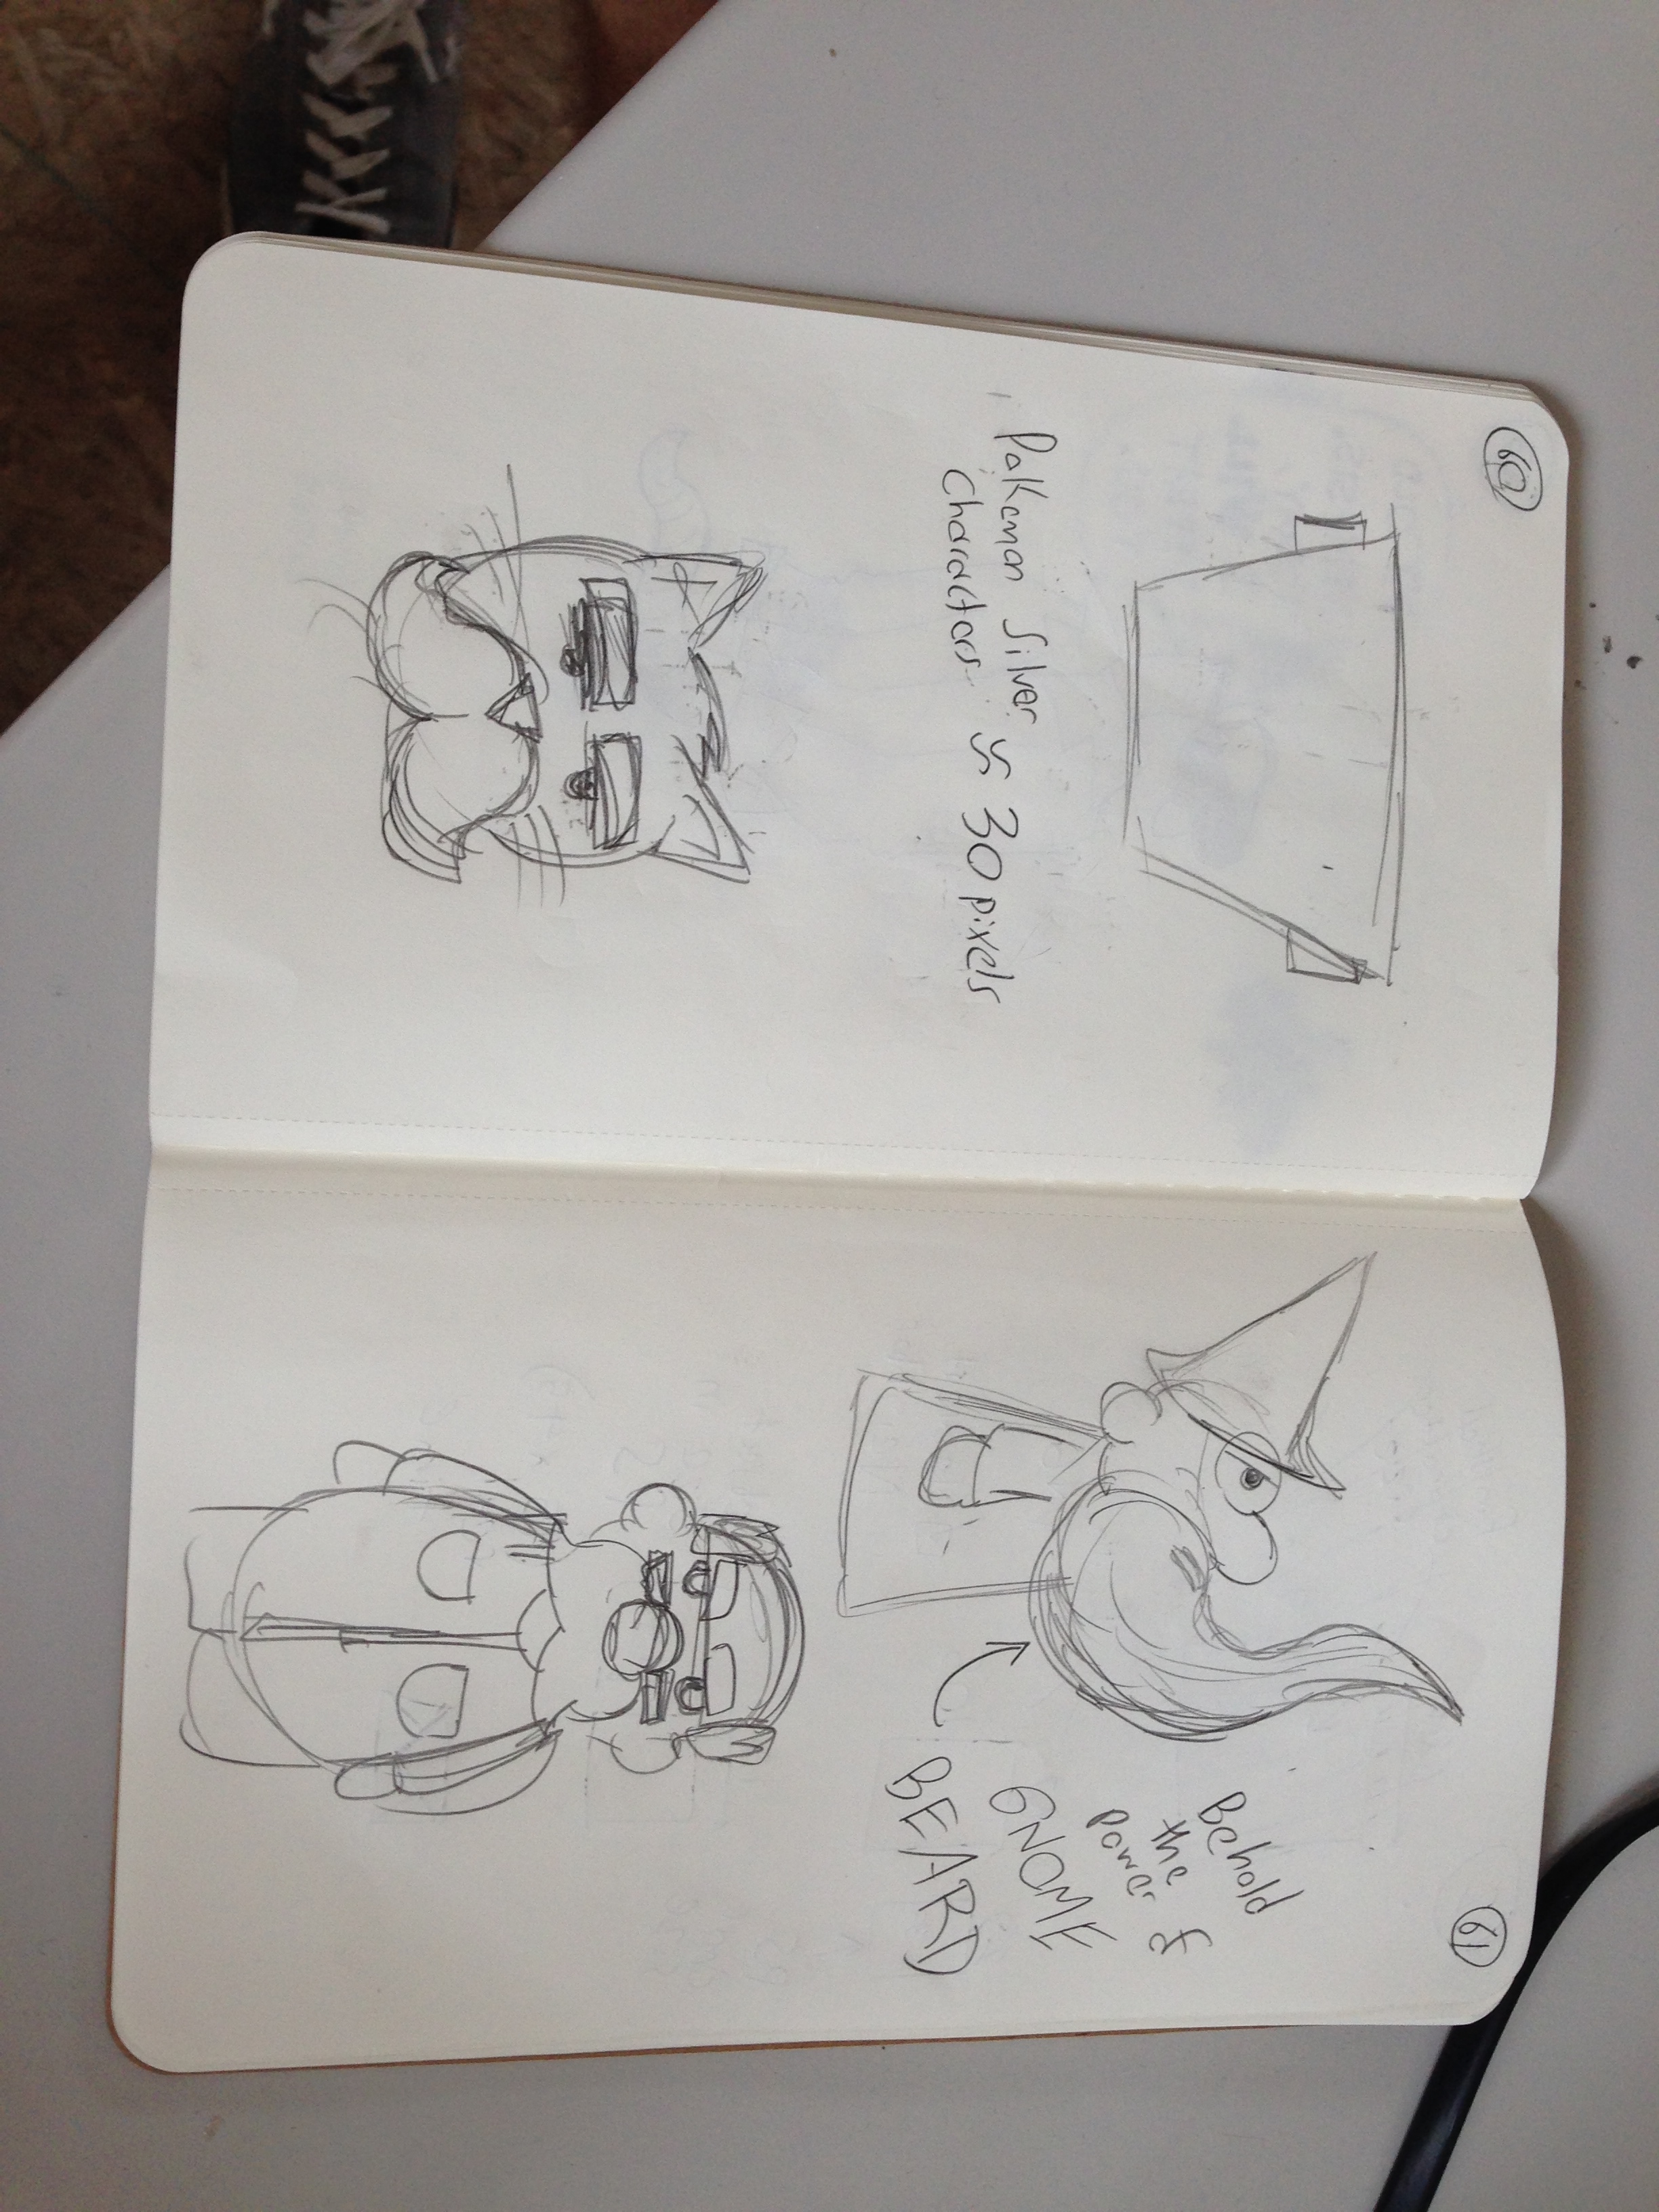 60
Pakeman Silver
characters ~ 30 pixels
61
Behold
the
power of
GNOME
BEARD